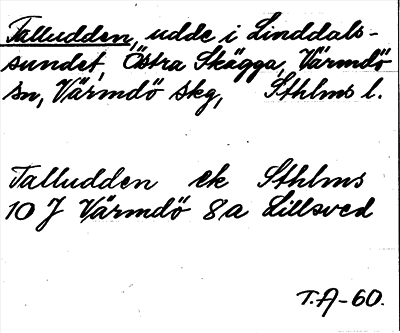 Talludden, udde i Linddals-
sundet, Östra Skägga, Värmdö
sn, Värmdö skg, Sthlms l.
Talludden ek Sthlms
10 J Värmdö 8a Lillsved
T.A-60.